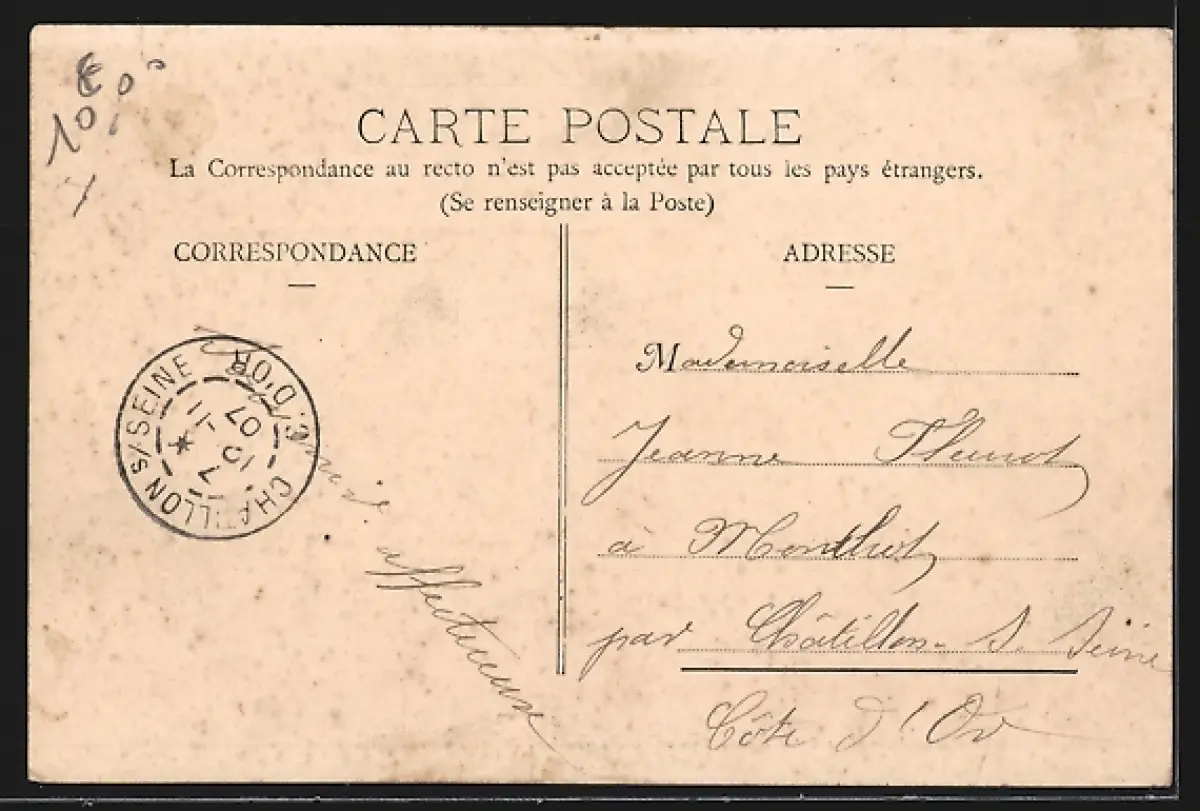 CARTE POSTALE
La Correspondance au recto n'est pas acceptée par tous les pays étrangers.
(Se renseigner à la Poste)
CORRESPONDANCE
ADRESSE
CHATILLON S/ SEINE
CÔTE D'OR
7
10 - 11
07
amie
affectueuse
Mademoiselle
Jeanne
à Monthiot
par Châtillon-s. Seine
Côte d'Or